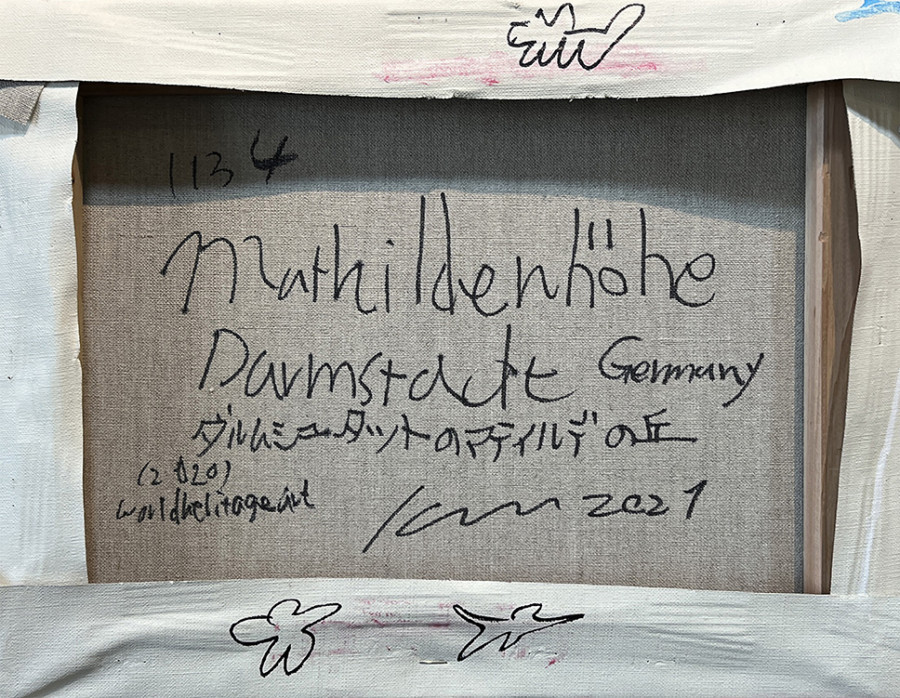 1134
Mathildenhöhe
Darmstadt Germany
ダルムシュタットのマティルデの丘
(2020)
worldheritageart
2021